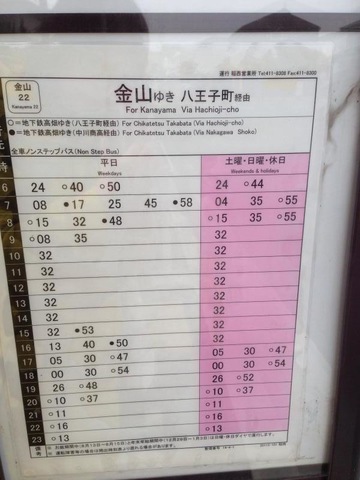 運行 稲西営業所 Tel411-6306 Fax411-6300
金山
22
Kanayama 22
金山ゆき 八王子町経由
For Kanayama Via Hachioji-cho
○=地下鉄高畑ゆき(八王子町経由) For Chikatetsu Takabata (Via Hachioji-cho)
●=地下鉄高畑ゆき(中川商高経由) For Chikatetsu Takabata (Via Nakagawa Shoko)
全車ノンステップバス(Non Step Bus)
時 平日 土曜・日曜・休日
Weekdays Weekends & holidays
6 24 ○40 ○50 24 ○44
7 08 ●17 25 45 ●58 04 35 ○55
8 ○15 32 ●48 ○15 35 ○55
9 ○08 35 32
10 32 32
11 32 32
12 32 32
13 32 32
14 32 32
15 32 ●53 32
16 13 40 ●50 32
17 05 30 ○47 05 30 ○47
18 00 30 ○54 00 30 ○54
19 26 ○48 26 ○52
20 ○10 ○37 ○10 ○37
21 ○11 ○11
22 ○16 ○16
23 ○13 ○13
備考